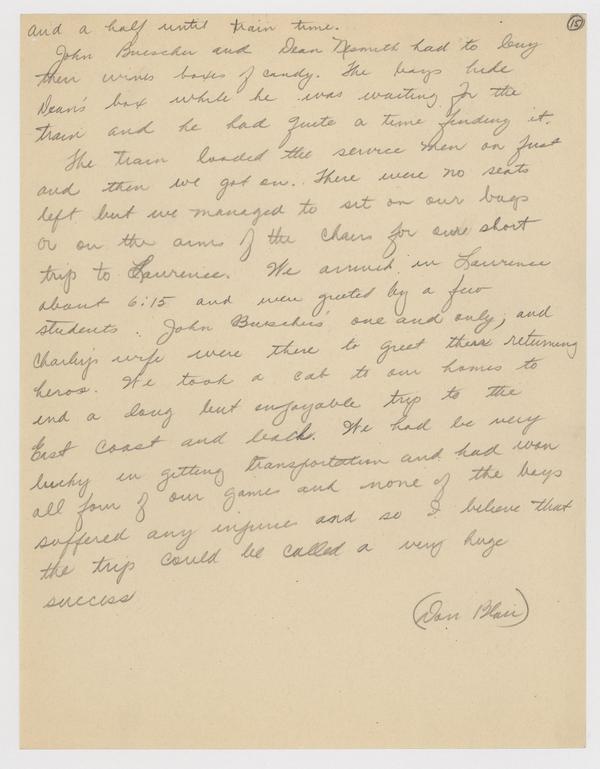 15
and a half until train time.
John Buescher and Dean Nesmith had to buy
their wives boxes of candy. The boys hide
Dean's box while he was waiting for the
train and he had quite a time finding it.
The train loaded the service men on first
and then we got on. There were no seats
left but we managed to sit on our bags
or on the arms of the chairs for our short
trip to Lawrence. We arrived in Lawrence
about 6:15 and were greeted by a few
students. John Buescher's one and only, and
Charley's wife were there to greet their returning
heros. We took a cab to our homes to
end a long but enjoyable trip to the
East coast and back. We had be very
lucky in getting transportation and had won
all four of our games and none of the boys
suffered any injuries and so I believe that
the trip could be called a very huge
success
(Don Blair)